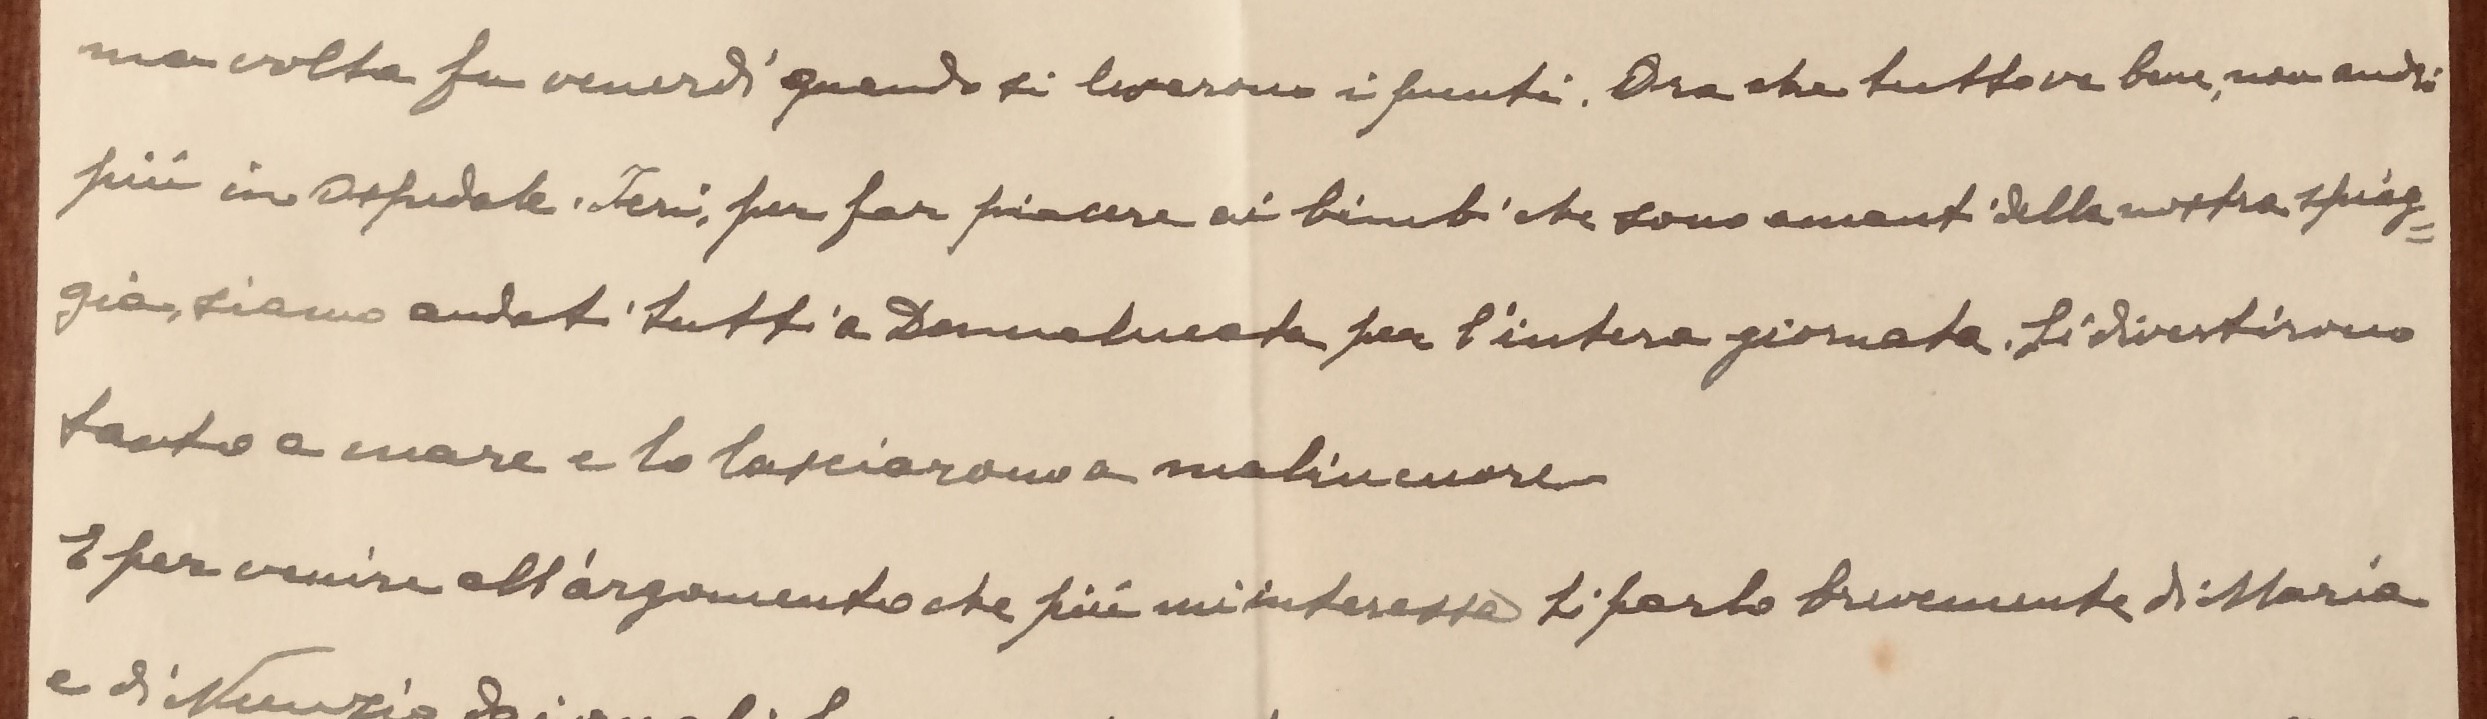 ma volta fu venerdì quando si levarono i punti. Ora che tutto va bene, non andrò
più in Ospedale. Ieri, per far piacere ai bimbi che sono amanti della nostra spiag=
gia, siamo andati tutti a Donnalucata per l'intera giornata. Si divertirono
tanto a mare e lo lasciarono a malincuore
E per venire all'argomento che più mi interessa ti parlo brevemente di Maria
e di Nunzio dai quali